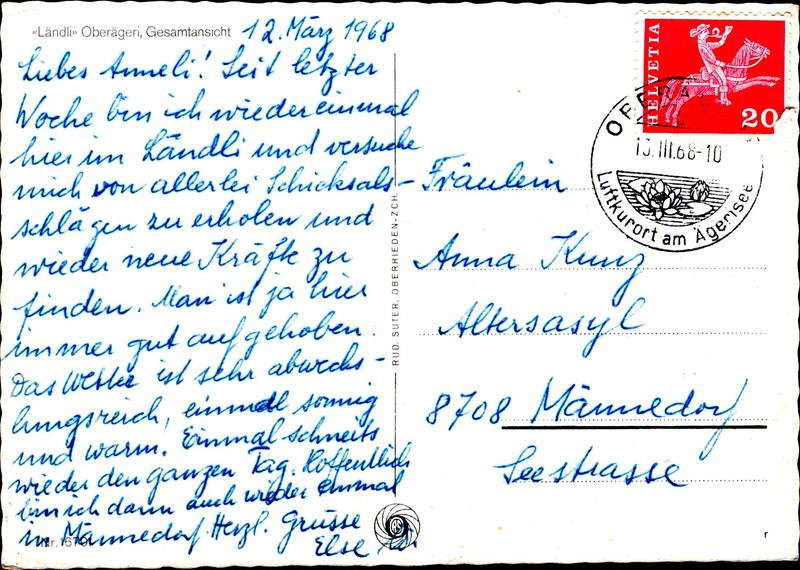 «Ländli» Oberägeri, Gesamtansicht
12. März 1968
Liebes Anneli! Seit letzter
Woche bin ich wieder einmal
hier im Ländli und versuche
mich von allerlei Schicksals-
schlägen zu erholen und
wieder neue Kräfte zu
finden. Man ist ja hier
immer gut aufgehoben.
Das Wetter ist sehr abwechs-
lungsreich, einmal sonnig
und warm. Einmal schneits
wieder den ganzen Tag. Hoffentlich
bin ich dann auch wieder einmal
in Männedorf. Herzl. Grüsse
Else W.
Nr. 1670
RUD. SUTER, OBERRIEDEN-ZCH.
HELVETIA
20
13.III.68-10
Luftkurort am Ägerisee
Fräulein
Anna Kunz
Altersasyl
8708 Männedorf
Seestrasse
r